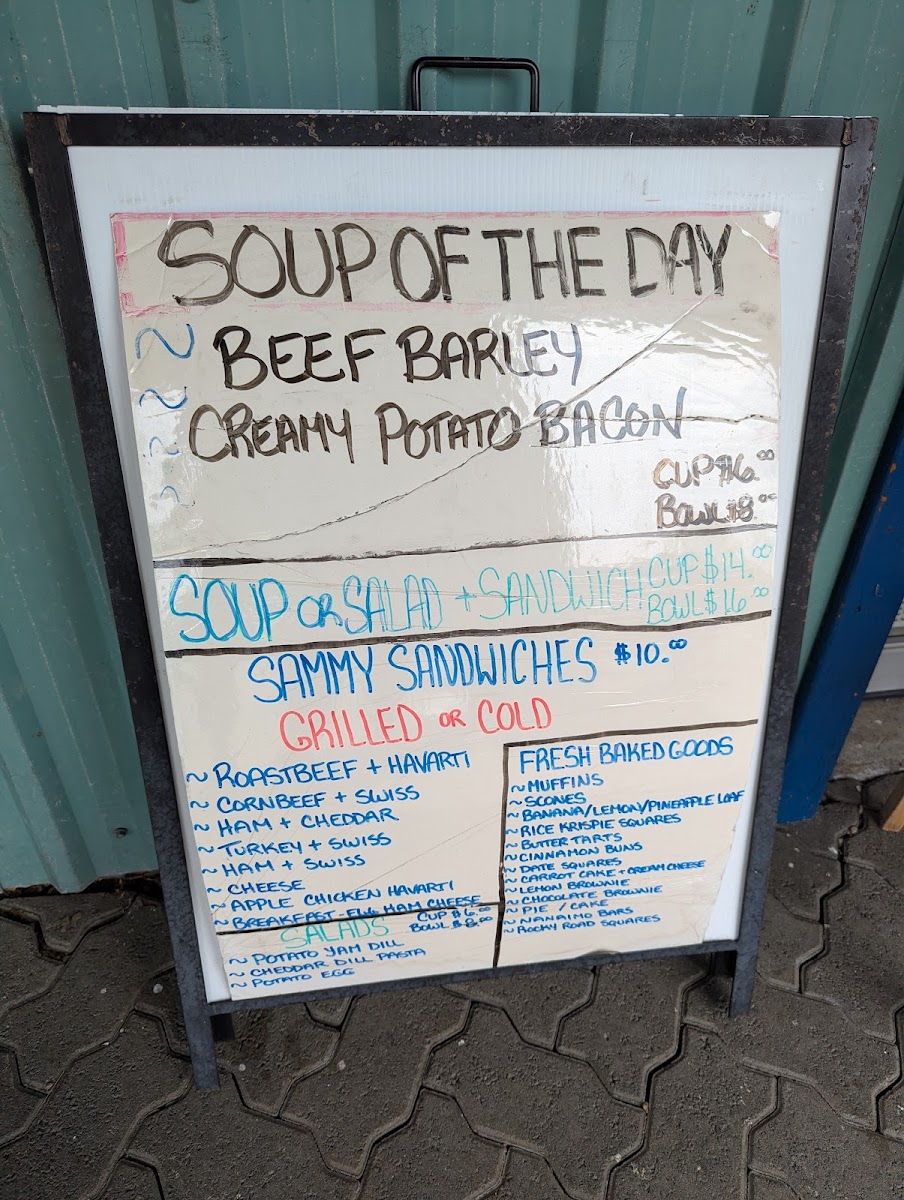 SOUP OF THE DAY
~ BEEF BARLEY
~ CREAMY POTATO BACON
~
~
CUP $6.00
BOWL $8.00
SOUP OR SALAD + SANDWICH CUP $14.00
BOWL $16.00
SAMMY SANDWICHES $10.00
GRILLED OR COLD
~ ROASTBEEF + HAVARTI
~ CORNBEEF + SWISS
~ HAM + CHEDDAR
~ TURKEY + SWISS
~ HAM + SWISS
~ CHEESE
~ APPLE CHICKEN HAVARTI
~ BREAKFAST - EGG HAM CHEESE
SALADS CUP $6.00
BOWL $8.00
~ POTATO YAM DILL
~ CHEDDAR DILL PASTA
~ POTATO EGG
FRESH BAKED GOODS
~ MUFFINS
~ SCONES
~ BANANA/LEMON/PINEAPPLE LOAF
~ RICE KRISPIE SQUARES
~ BUTTER TARTS
~ CINNAMON BUNS
~ DATE SQUARES
~ CARROT CAKE + CREAM CHEESE
~ LEMON BROWNIE
~ CHOCOLATE BROWNIE
~ PIE / CAKE
~ NANAIMO BARS
~ ROCKY ROAD SQUARES